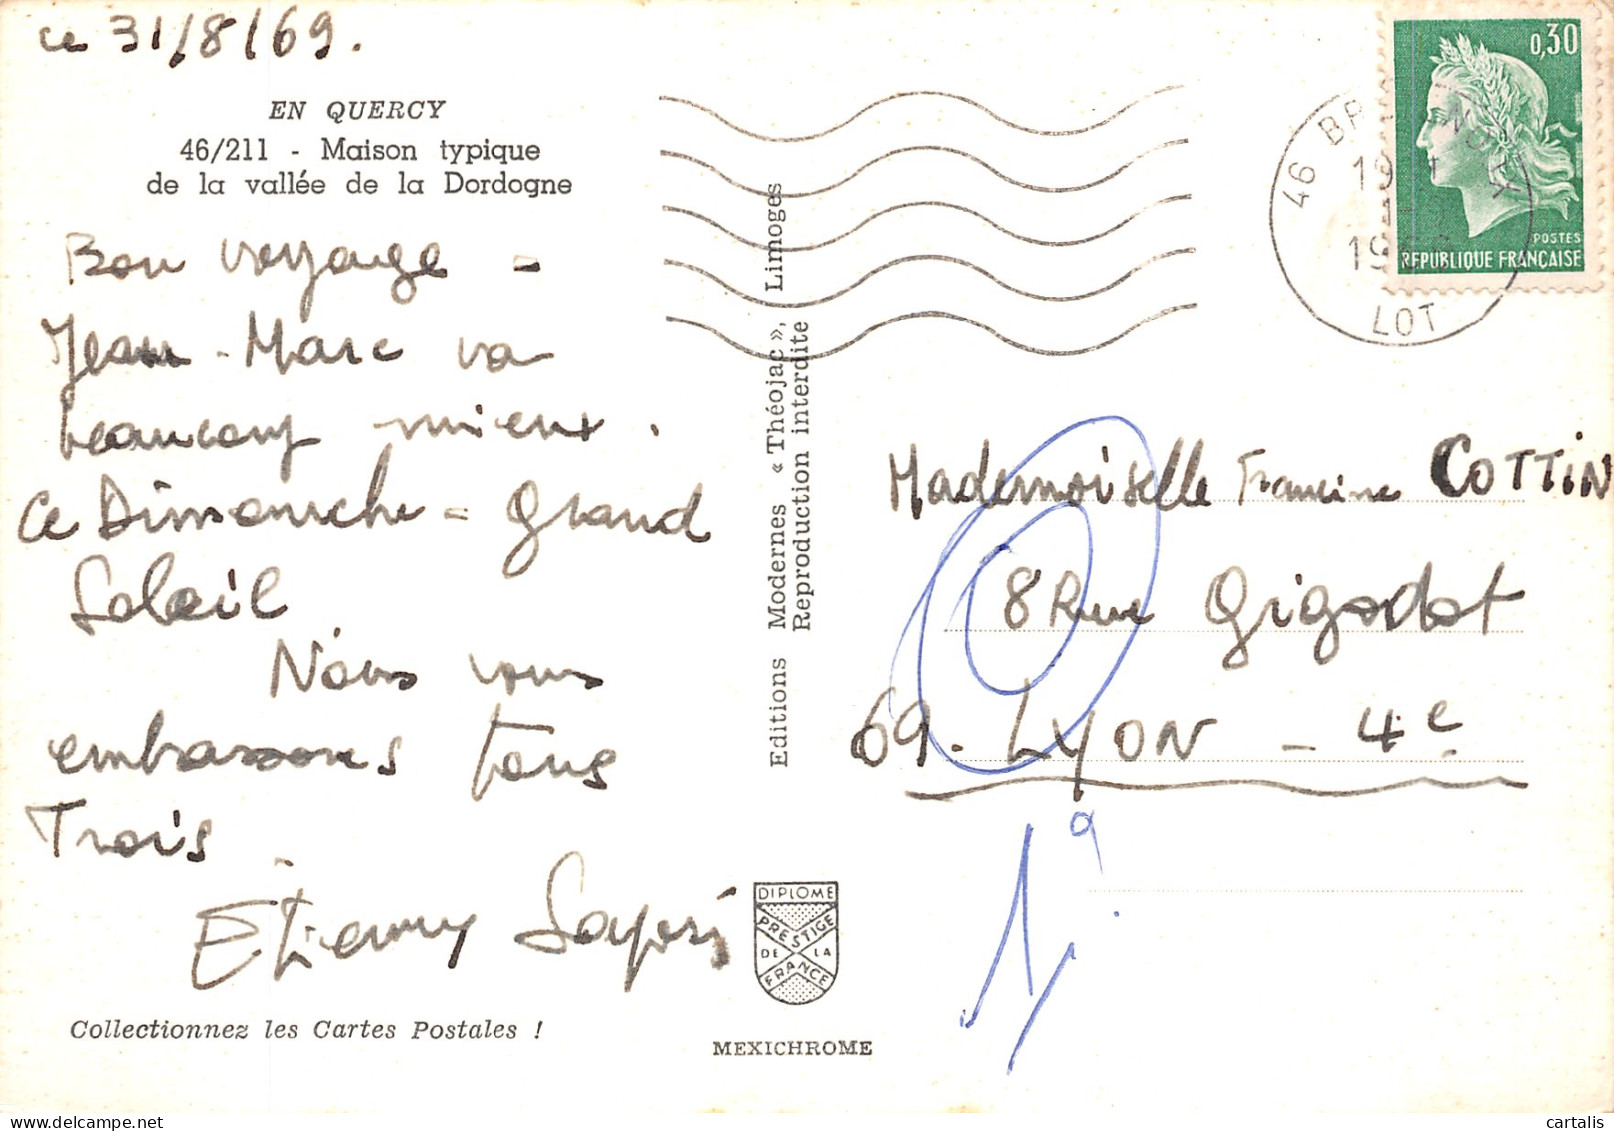 ce 31/8/69.
EN QUERCY
46/211 - Maison typique
de la vallée de la Dordogne
Bon voyage -
Jean-Marc va
beaucoup mieux.
Ce Dimanche - Grand
Soleil
Nous vous
embrassons tous
Trois
Editions Modernes « Théojac », Limoges
Reproduction interdite
0,30
POSTES
REPUBLIQUE FRANÇAISE
46
LOT
Mademoiselle Francine COTTIN
8 Rue Gigodot
69. LYON - 4e
DIPLOME
PRESTIGE
DE LA
FRANCE
Collectionnez les Cartes Postales !
MEXICHROME
cartalis